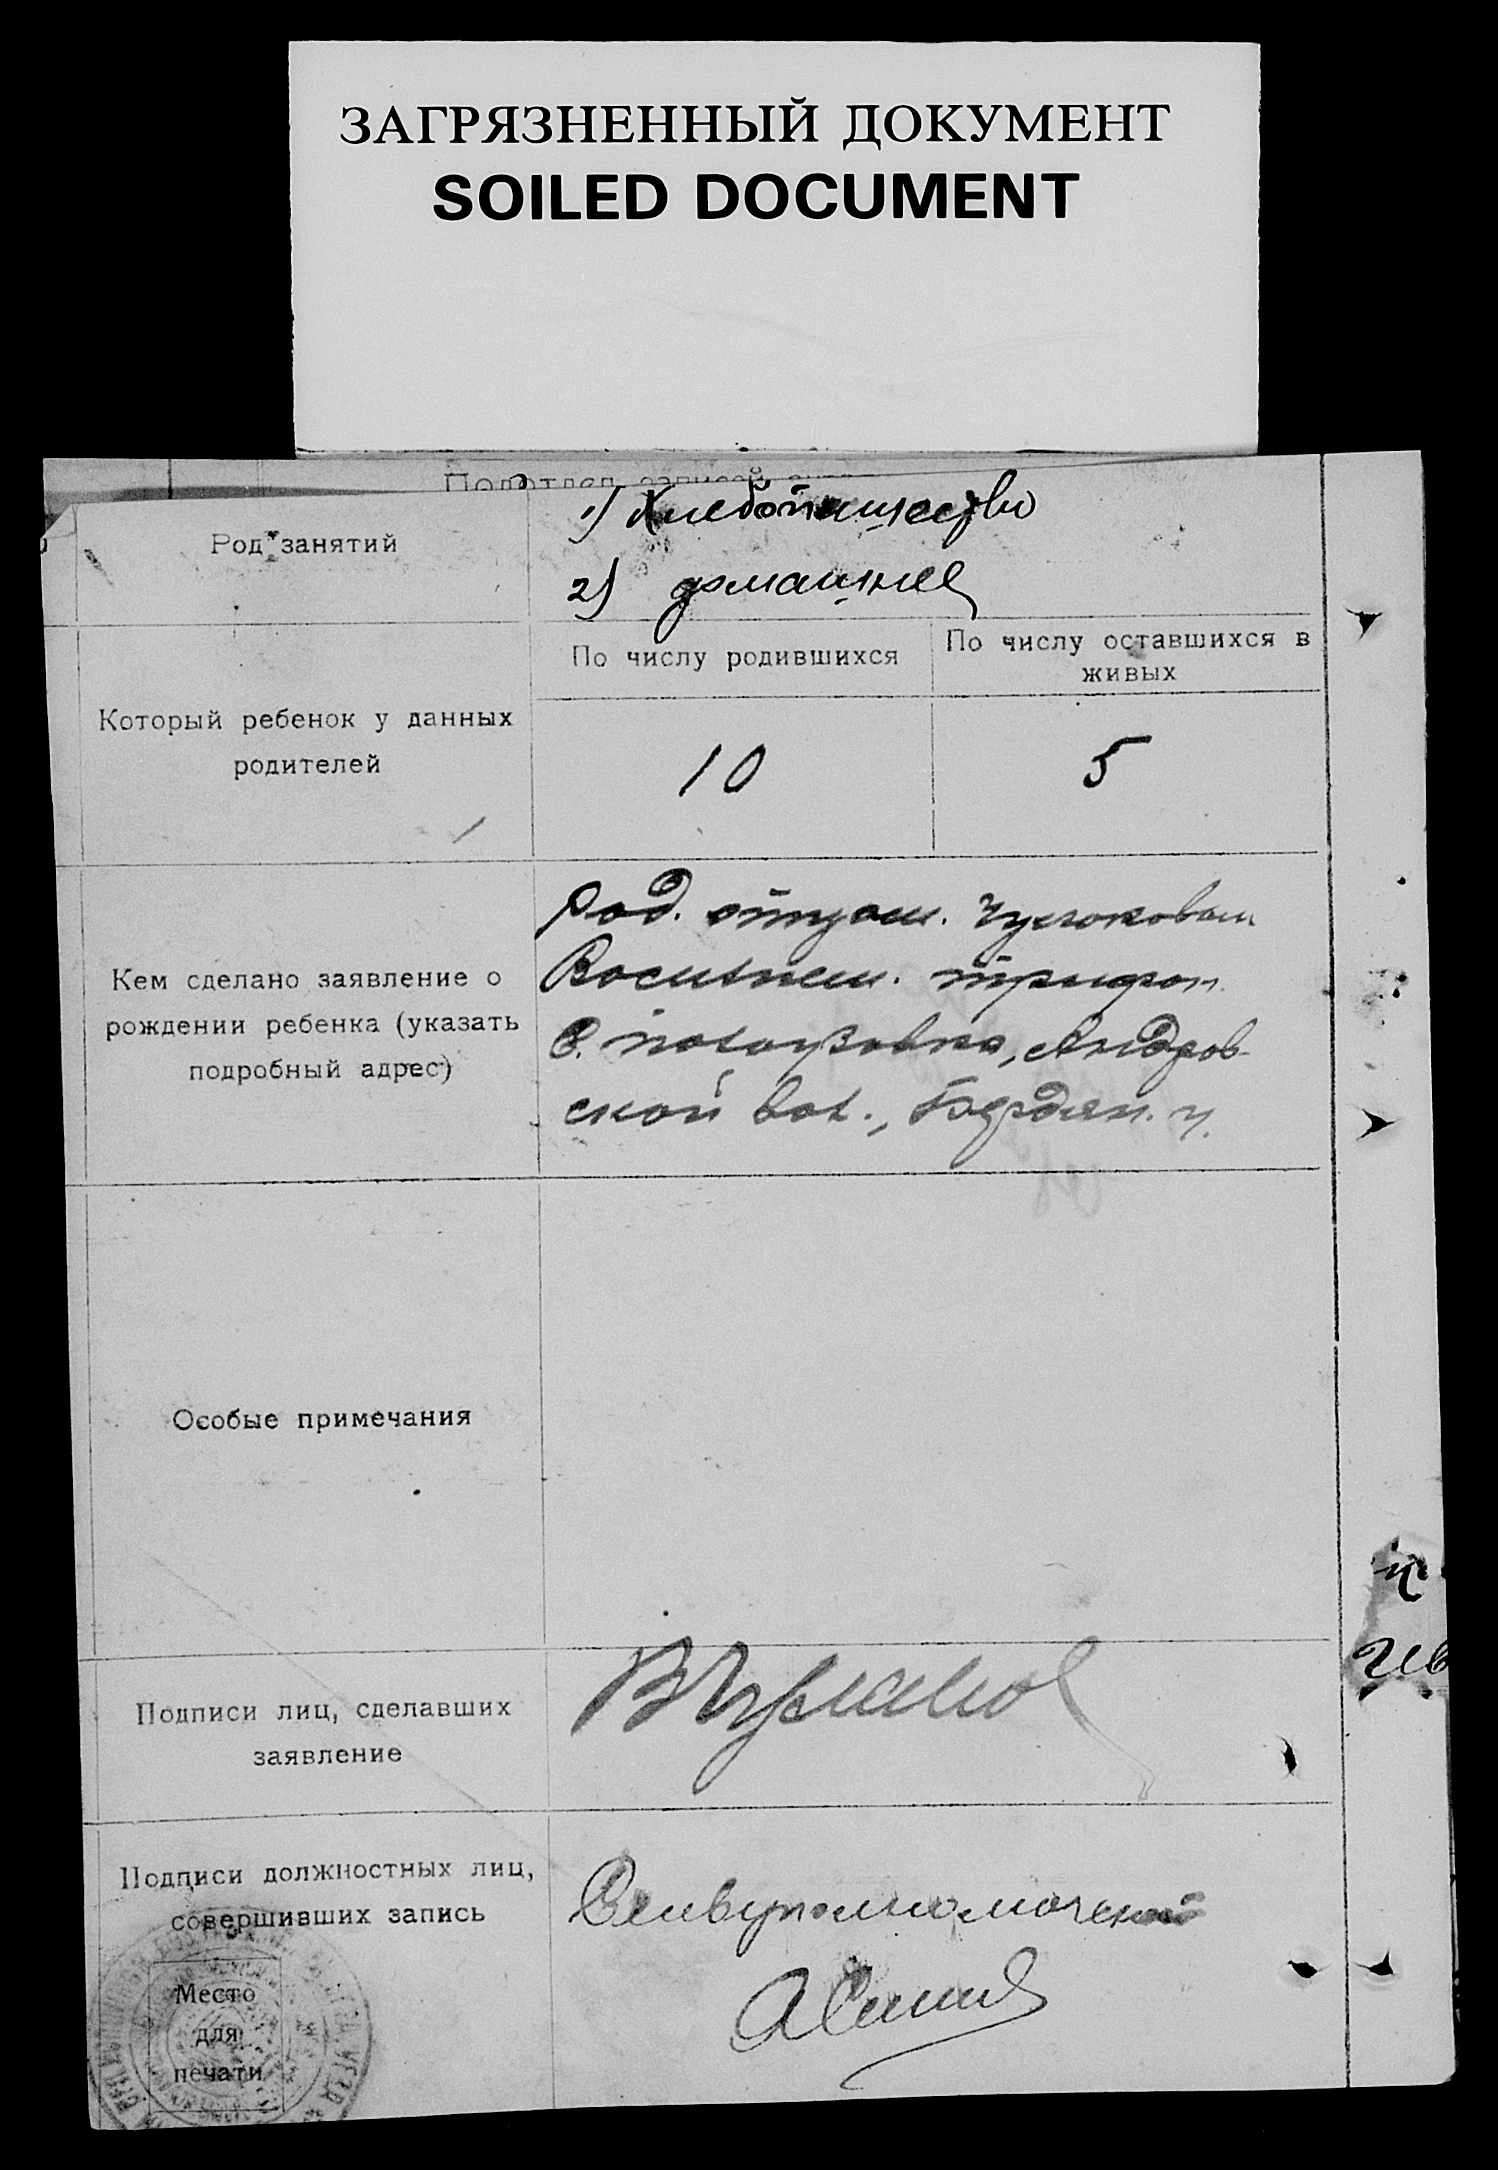 ЗАГРЯЗНЕННЫЙ ДОКУМЕНТ
SOILED DOCUMENT
Подотдел записей
Род занятий
1) Хлебопашество
2) домашнее
Который ребенок у данных
родителей
По числу родившихся
По числу оставшихся в
живых
10
5
Кем сделано заявление о
рождении ребенка (указать
подробный адрес)
Род. отцом.
Васильем. Трифон.
С. Андров-
ской вол., Бердян. у.
Особые примечания
Подписи лиц, сделавших
заявление
Подписи должностных лиц,
совершивших запись
Место
для
печати